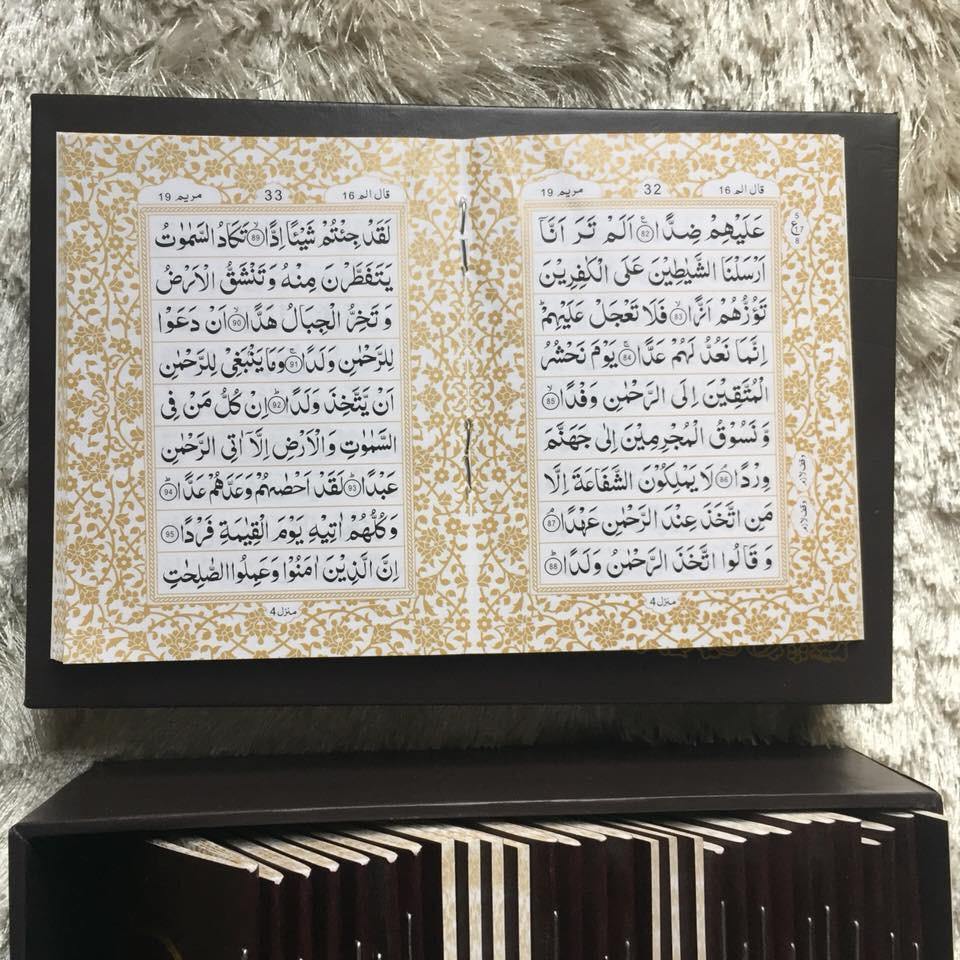 قال الم 16
32
مريم 19
عَلَيْهِمْ ضِدًّا 82 اَلَمْ تَرَ اَنَّآ
اَرْسَلْنَا الشَّيٰطِيْنَ عَلَى الْكٰفِرِيْنَ
تَؤُزُّهُمْ اَزًّا 83 فَلَا تَعْجَلْ عَلَيْهِمْ
اِنَّمَا نَعُدُّ لَهُمْ عَدًّا 84 يَوْمَ نَحْشُرُ
الْمُتَّقِيْنَ اِلَى الرَّحْمٰنِ وَفْدًا 85
وَّ نَسُوْقُ الْمُجْرِمِيْنَ اِلٰى جَهَنَّمَ
وِرْدًا 86 لَا يَمْلِكُوْنَ الشَّفَاعَةَ اِلَّا
مَنِ اتَّخَذَ عِنْدَ الرَّحْمٰنِ عَهْدًا 87
وَ قَالُوا اتَّخَذَ الرَّحْمٰنُ وَلَدًا 88
منزل 4
5
ع 17
8
وقف لازم
وقف لازم
قال الم 16
33
مريم 19
لَقَدْ جِئْتُمْ شَيْئًا اِدًّا 89 تَكَادُ السَّمٰوٰتُ
يَتَفَطَّرْنَ مِنْهُ وَ تَنْشَقُّ الْاَرْضُ
وَ تَخِرُّ الْجِبَالُ هَدًّا 90 اَنْ دَعَوْا
لِلرَّحْمٰنِ وَلَدًا 91 وَمَا يَنْبَغِىْ لِلرَّحْمٰنِ
اَنْ يَّتَّخِذَ وَلَدًا 92 اِنْ كُلُّ مَنْ فِى
السَّمٰوٰتِ وَ الْاَرْضِ اِلَّآ اٰتِى الرَّحْمٰنِ
عَبْدًا 93 لَقَدْ اَحْصٰىهُمْ وَعَدَّهُمْ عَدًّا 94
وَ كُلُّهُمْ اٰتِيْهِ يَوْمَ الْقِيٰمَةِ فَرْدًا 95
اِنَّ الَّذِيْنَ اٰمَنُوْا وَعَمِلُوا الصّٰلِحٰتِ
منزل 4